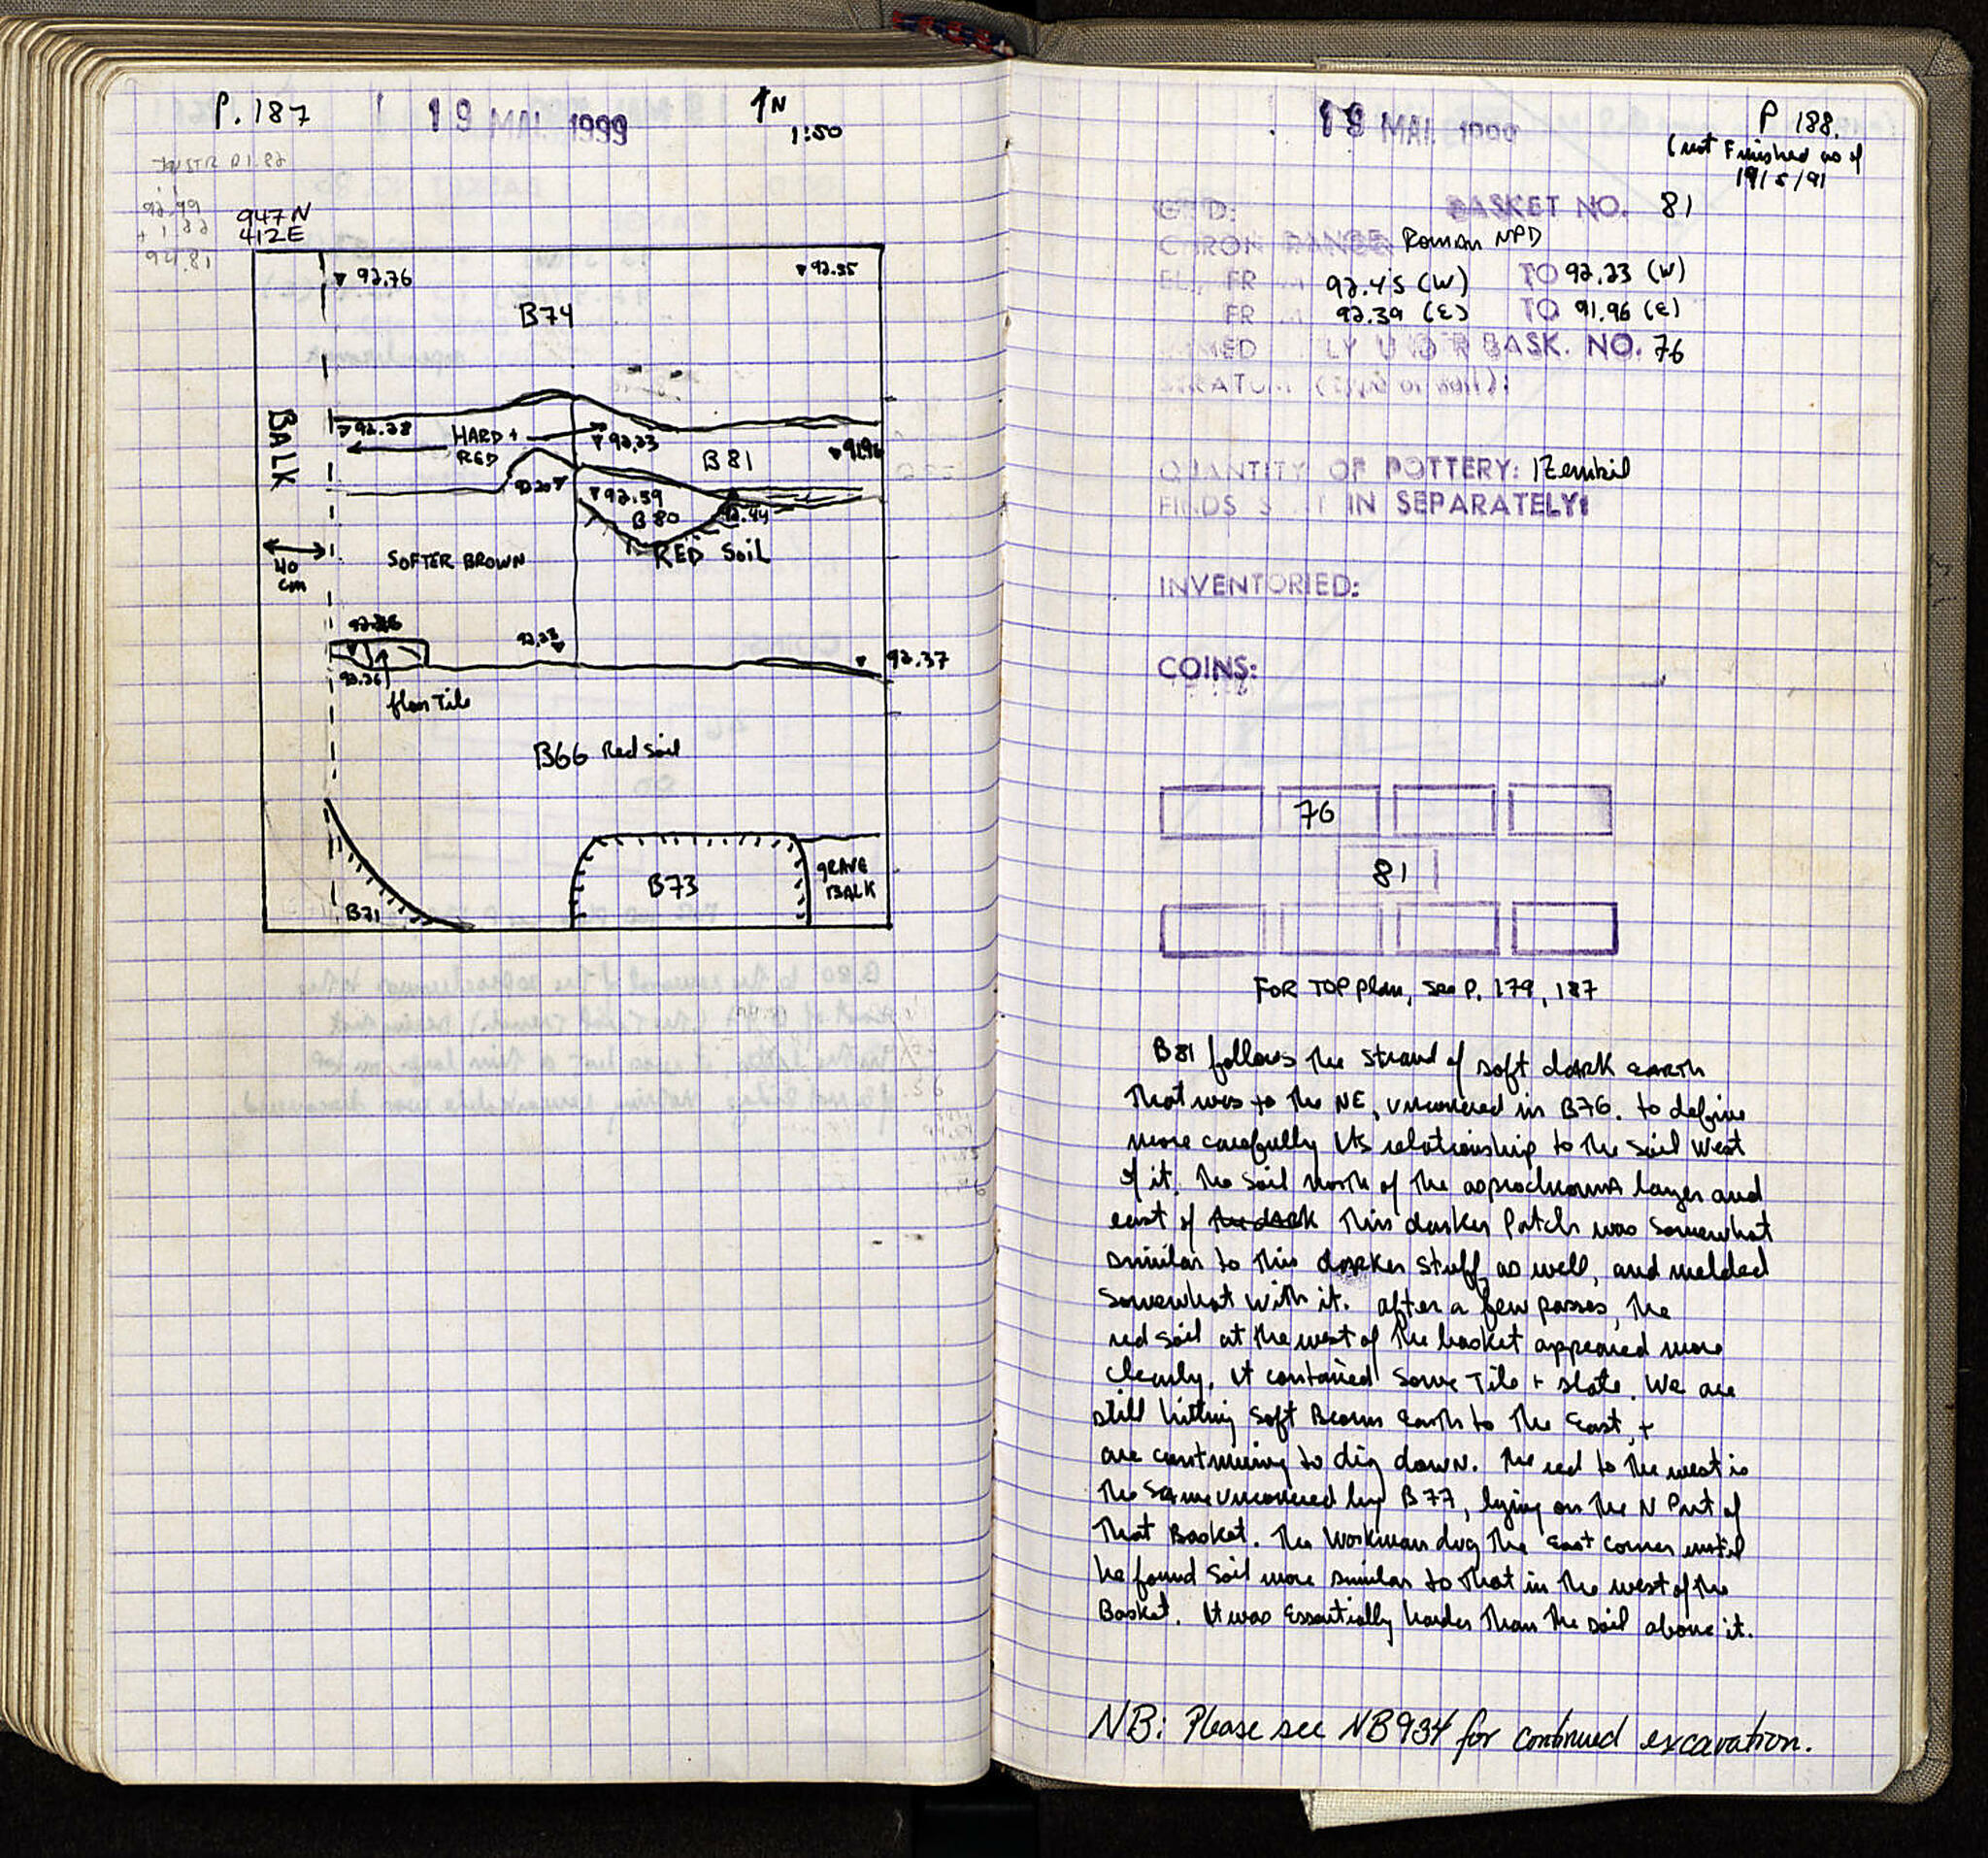 P. 187
19 MAI 1999
N
1:50
92.99
+ 1.82
94.81
947 N
412 E
▼ 92.76
▼ 92.55
B74
BALK
▼ 92.28
HARD +
RED
▼ 92.23
B 81
▼ 91.96
▼ 92.59
B 80
92.44
RED SOIL
SOFTER BROWN
40
cm
92.23
92.37
92.26
floor Tile
B66 Red soil
B73
GRAVE
BALK
B71
19 MAI 1999
P 188.
(not Finished as of
19/5/91
BASKET NO. 81
CHRON RANGE: Roman NPD
92.45 (W) TO 92.23 (W)
FR 92.39 (E) TO 91.96 (E)
BASK. NO. 76
QUANTITY OF POTTERY: 1 Zembil
FINDS IN SEPARATELY:
INVENTORIED:
COINS:
76
81
FOR TOP plan, see P. 179, 187
B81 follows the strand of soft dark earth
that was to the NE, uncovered in B76. to define
more carefully its relationship to the soil West
of it. The soil north of the asprochoma layer and
east of the dark this darker patch was somewhat
similar to this darker stuff as well, and melded
somewhat with it. after a few passes, the
red soil at the west of the basket appeared more
clearly, it contained some Tile + slate. We are
still hitting soft Brown earth to the East, +
are continuing to dig down. The red to the west is
the same uncovered by B77, lying on the N Part of
that Basket. The Workman dug the East corner until
he found soil more similar to that in the west of the
Basket. It was essentially harder than the soil above it.
NB: Please see NB934 for continued excavation.